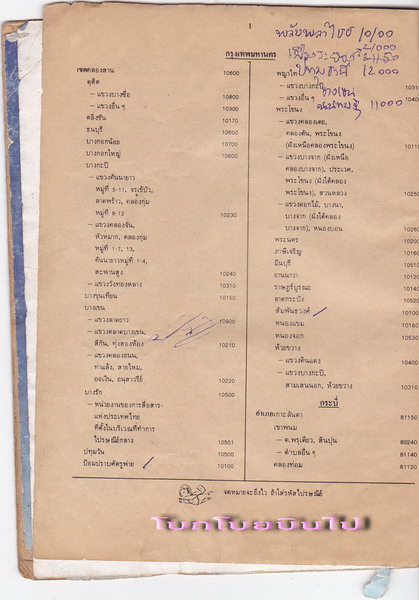 1
พลับพลาไชย 10100
12000
11000
กรุงเทพมหานคร
เขตคลองสาน 10600
ดุสิต
– แขวงบางซื่อ 10800
– แขวงอื่น ๆ 10300
ตลิ่งชัน 10170
ธนบุรี 10600
บางกอกน้อย 10700
บางกอกใหญ่ 10600
บางกะปิ
– แขวงคันนายาว
หมู่ที่ 5-11, จรเข้บัว,
ลาดพร้าว, คลองกุ่ม
หมู่ที่ 8-12 10230
– แขวงคลองจั่น,
หัวหมาก, คลองกุ่ม
หมู่ที่ 1-7, 13,
คันนายาวหมู่ที่ 1-4,
สะพานสูง 10240
– แขวงวังทองหลาง 10310
บางขุนเทียน 10150
บางเขน
– แขวงลาดยาว 10900
– แขวงตลาดบางเขน,
สีกัน, ทุ่งสองห้อง 10210
– แขวงคลองถนน,
ท่าแล้ง, สายไหม,
ออเงิน, อนุสาวรีย์ 10220
บางรัก 10500
– หน่วยงานของการสื่อสาร
แห่งประเทศไทย
ที่ตั้งในบริเวณที่ทำการ
ไปรษณีย์กลาง 10501
ปทุมวัน 10500
ป้อมปราบศัตรูพ่าย 10100
พญาไท
– แขวงบางกะปิ
– แขวงอื่น ๆ
พระโขนง
– แขวงคลองเตย,
คลองตัน, พระโขนง
(ฝั่งเหนือคลองพระโขนง) 10110
– แขวงบางจาก (ฝั่งเหนือ
คลองบางจาก), ประเวศ,
พระโขนง (ฝั่งใต้คลอง
พระโขนง), สวนหลวง 10250
– แขวงดอกไม้, บางนา,
บางจาก (ฝั่งใต้คลอง
บางจาก), หนองบอน 10260
พระนคร 10200
ภาษีเจริญ 10160
มีนบุรี 10510
ยานนาวา 10120
ราษฎร์บูรณะ 10140
ลาดกระบัง 10520
สัมพันธวงศ์ 10100
หนองแขม 10160
หนองจอก 10530
ห้วยขวาง
– แขวงดินแดง 10400
– แขวงบางกะปิ,
สามเสนนอก, ห้วยขวาง 10310
กระบี่
อำเภอเกาะลันตา 81150
เขาพนม
– ต.พรุเตียว, สินปุน 80240
– ตำบลอื่น ๆ 81140
คลองท่อม 81120
จดหมายจะถึงไว ถ้าใส่รหัสไปรษณีย์
โบกโบยบินไป